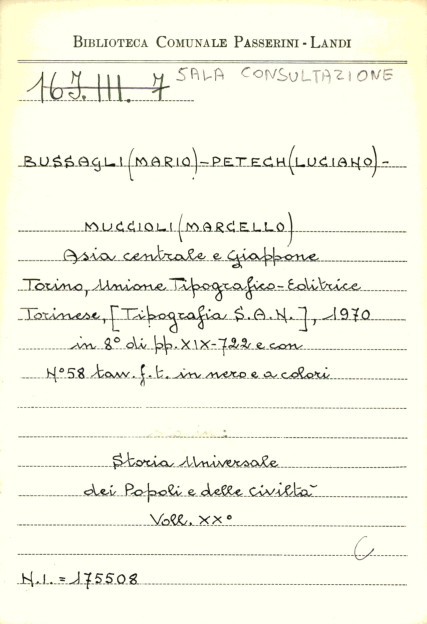 BIBLIOTECA COMUNALE PASSERINI-LANDI
16J.III.7 SALA CONSULTAZIONE
BUSSAGLI (MARIO)-PETECH (LUCIANO)-
MUCCIOLI (MARCELLO)
Asia centrale e Giappone
Torino, Unione Tipografico-Editrice
Torinese, [Tipografia S.A.N.], 1970
in 8° di pp. XIX-722 e con
N°58 tav. f.t. in nero e a colori
Storia Universale
dei Popoli e delle civiltà
Voll. XX°
C
N.I. = 175508